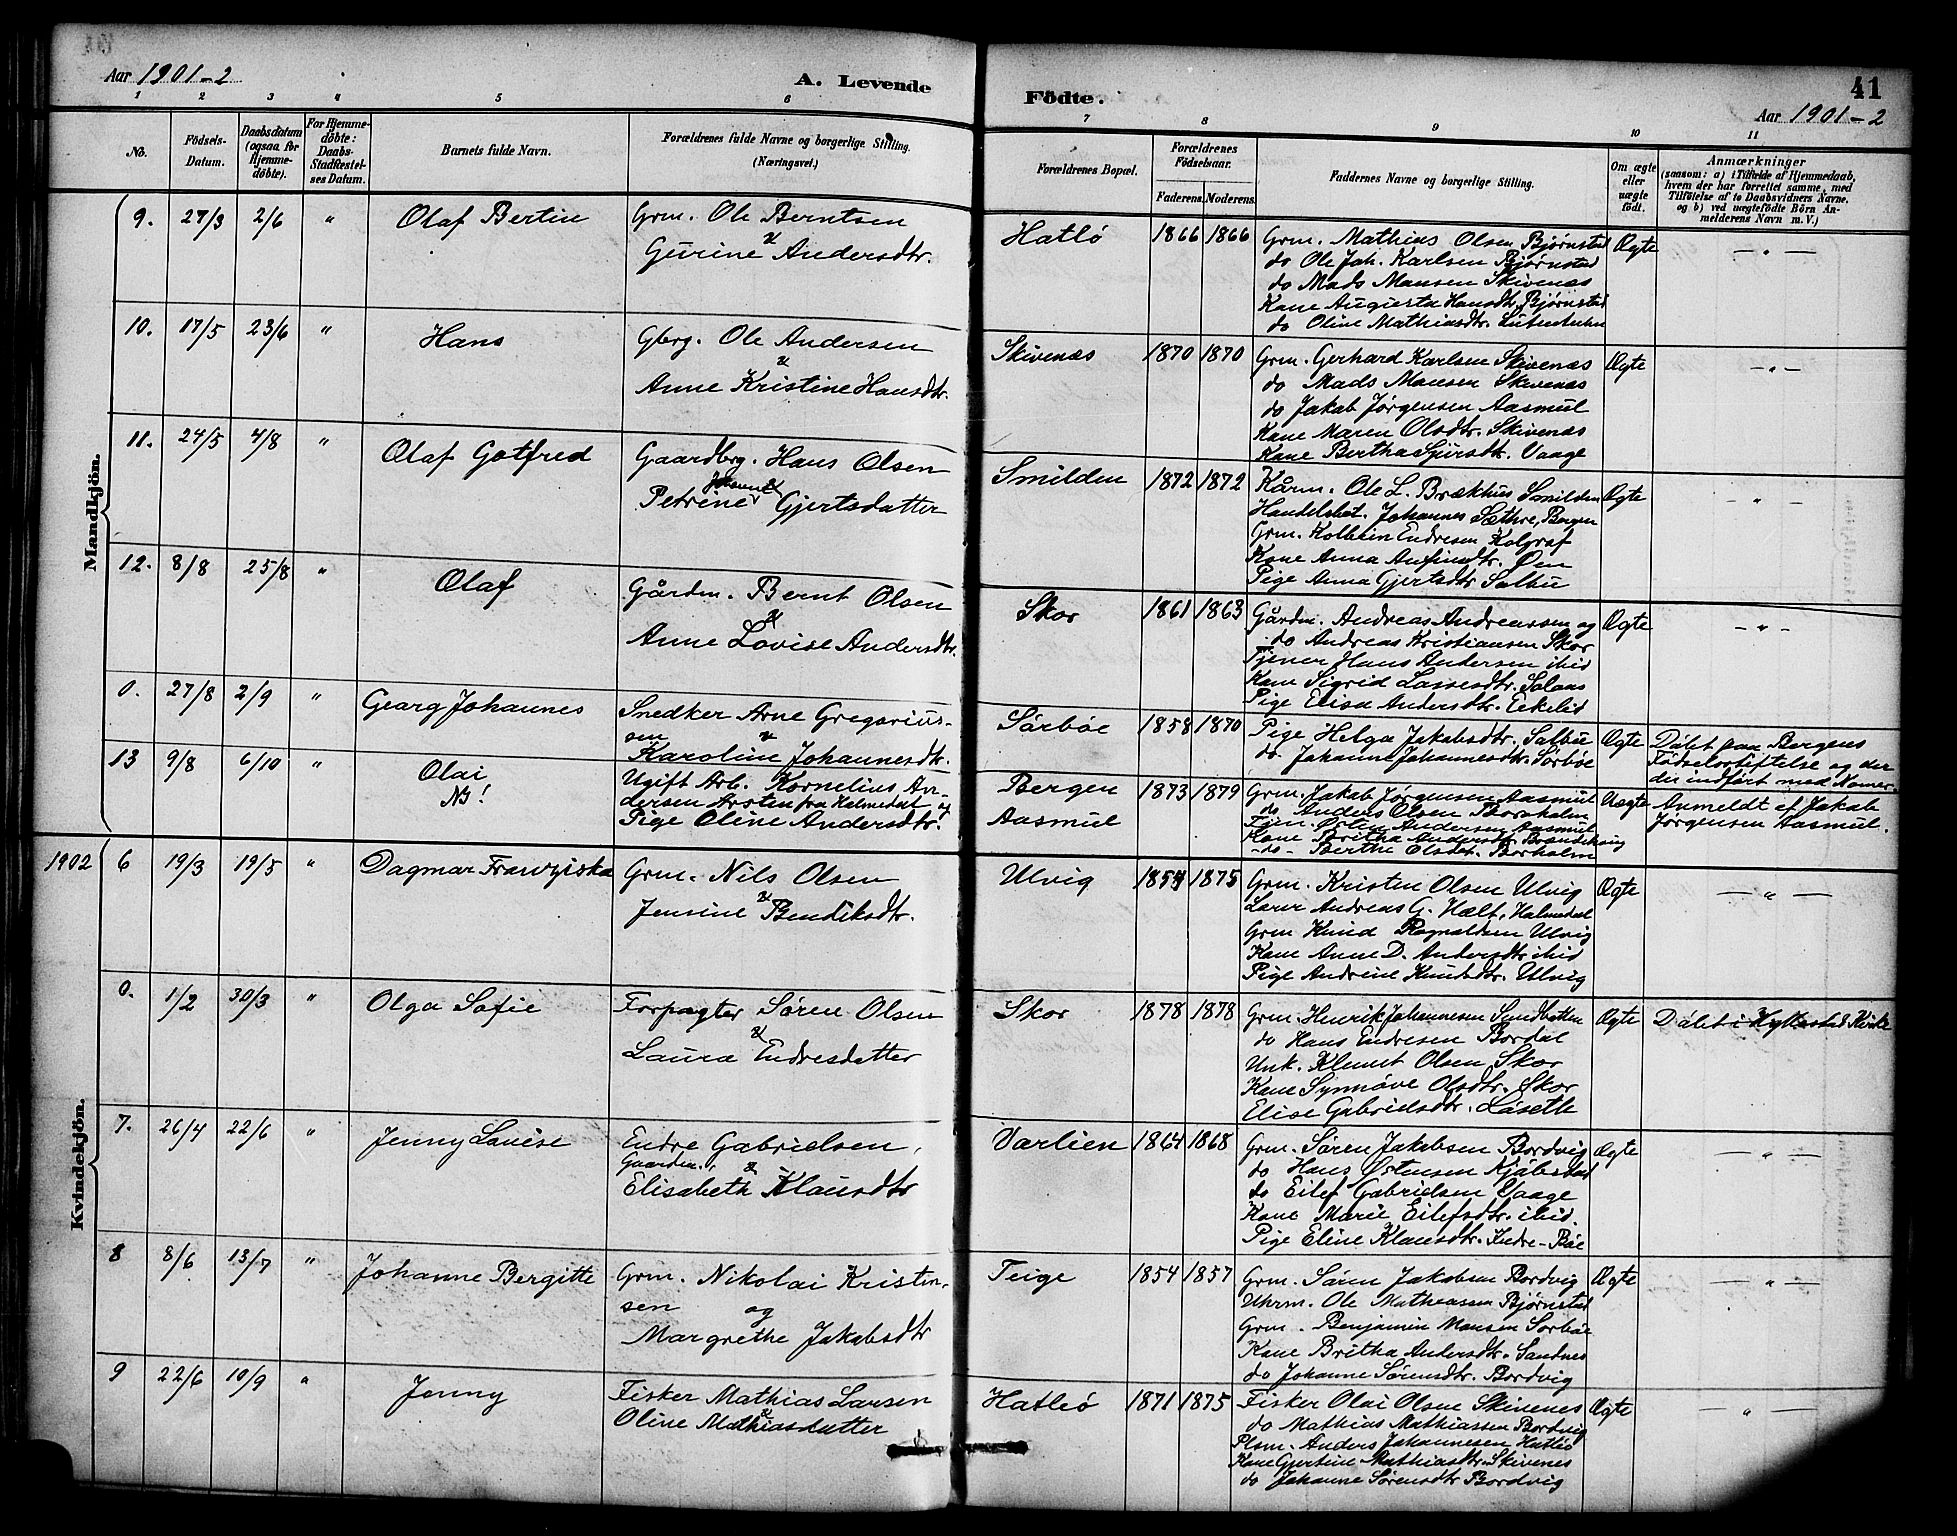 Aar 1901-2
A. Levende
Födte.
41
Aar 1901-2
1 2 3 4 5 6 7 8 9 10 11
No.
Födsels-Datum.
Daabsdatum (ogsaa for Hjemmedöbte).
For Hjemmedöbte: Daabs-Stadfæstelses Datum.
Barnets fulde Navn.
Forældrenes fulde Navne og borgerlige Stilling.
(Næringsvei.)
Forældrenes Bopæl.
Forældrenes Födselsaar.
Faderens. Moderens.
Faddernes Navne og borgerlige Stilling.
Om ægte eller uægte födt.
Anmærkninger
(saasom: a) i Tilfælde af Hjemmedaab, hvem der har forrettet samme, med Tilföielse af to Daabsvidners Navne, og b) ved uægtefödte Börn Anmelderens Navn m. V.)
Mandkjön.
9. 27/3 2/6 " Olaf Bertin
Grm. Ole Berntsen
&
Gurine Andersdtr.
Hatlö 1866 1866
Grm. Mathias Olsen Bjørnstad
do Ole Joh. Karlsen Bjørnstad
do Mads Monsen Skivenæs
Kone Augusta Hansdtr. Bjørnstad
do Oline Mathiasdtr.
Ægte — " —
10. 17/5 23/6 " Hans
Gbrg. Ole Andersen
&
Anne Kristine Hansdtr.
Skivenæs 1870 1870
Grm. Gerhard Karlsen Skivenæs
do Mads Monsen Skivenæs
do Jakob Jørgensen Aasmul
Kone Maren Olsdtr. Skivenæs
Kone Bertha Sjursdtr. Vaage
Ægte — " —
11. 24/5 4/8 " Olaf Gotfred
Gaardbrg. Hans Olsen
&
Petrine Johanne Gjertsdatter
Smilden 1872 1872
Kårm. Ole L. Brækhus Smilden
Handelsbet. Johannes Sæthre, Bergen
Grm. Kolbein Endresen Kolgraf
Kone Anna Anfindtr. Øen
Pige Anna Gjertsdtr Salbu
Ægte — " —
12. 8/8 25/8 " Olaf
Gårdm. Bernt Olsen
&
Anne Lovise Andersdtr.
Skor 1861 1863
Gårdm. Andreas Andreassen og
do Andreas Kristiansen Skor
Tjener Hans Andersen ibid
Kone Sigrid Lassesdtr. Salaas
Pige Elisa Andersdtr. Eekelid
Ægte — " —
0. 27/8 2/9 " Georg Johannes
Snedker Arne Gregorius-
sen &
Karoline Johannesdtr.
Sörböe 1858 1870
Pige Helga Jakobsdtr. Salbu
do. Johanne Johannesdtr. Sörböe
Ægte
Döbt paa Bergens
Födselsstiftelse og der
der indfört med Nomer.
13 9/8 6/10 " Olai
NB!
Ugift Arb. Kornelius An-
dersen Arsten fra Holmedal og
Pige Oline Andersdtr.
Bergen
Aasmul 1873 1879
Grm. Jakob Jørgensen Aasmul
do Anders Olsen Borholm
Tjen. Andersen Aasmul
Kone Britha Andersdtr.
-do- Berthe Olsdtr. Borholm
Uægte
Anmeldt af Jakob
Jørgensen Aasmul.
1902
Kvindekjön.
6 19/3 19/5 " Dagmar Franziska
Grm. Nils Olsen
&
Jensine Bendiksdtr.
Ulvig 1854 1875
Grm. Kristen Olsen Ulvig
Lærer Andreas G. Hælt, Holmedal
Grm Knud Ragnaldsen Ulvig
Kone Anne D. Andersdtr ibid
Pige Andrine Knutsdtr. Ulvig
Ægte — " —
0. 1/2 30/3 " Olga Sofie
Forpagter Sören Olsen
&
Laura Endresdatter
Skor 1878 1878
Grm. Henrik Johannesen Sundbotten
do Hans Endresen Bordal
Unk. Klemet Olsen Skor
Kone Synnöve Olsdtr. Skor
Elise Gabrielsdtr. Läseth
Ægte
Döbt i Hyllestad Kirke
7. 26/4 22/6 " Jenny Lovise
Endre Gabrielsen,
Gaardm. &
Elisabeth Klausdtr
Varlien 1864 1868
Grm. Sören Jakobsen Bordvig
do Hans Östensen Kjölesdal
do Eilef Gabrielsen Vaage
Kone Marie Eilefsdtr. ibid.
Pige Eline Klausdtr. Indre-Böe
Ægte — " —
8 8/6 13/7 " Johanne Bergitte
Grm. Nikolai Kristen-
sen
og
Margrethe Jakobsdtr
Teige 1854 1857
Grm. Sören Jakobsen Bordvig
Uhrm. Ole Mathiassen Bjørnstad
Grm. Benjamin Monsen Sorböe
Kone Britha Andersdtr. Sandnes
do Johanne Sörensdtr. Bordvig
Ægte — " —
9 22/6 10/9 " Jenny
Fisker Mathias Larsen
&
Oline Mathiasdatter
Hatleö 1871 1875
Fisker Olai Olsen Skivenes
do Mathias Mathiassen Bordvig
Plsm. Anders Johannesen Hatleö
Kone Gjertine Mathiasdtr. Skivenes
do Johanne Sörensdtr Bordvig
Ægte — " —